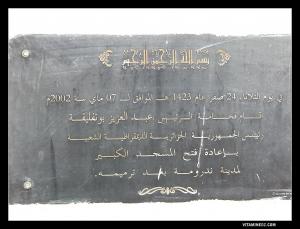 بسم الله الرحمن الرحيم
في يوم الثلاثاء 24 صفر عام 1423 هـ الموافق لـ 07 ماي سنة 2002م
قام فخامة الرئيس عبد العزيز بوتفليقة
رئيس الجمهورية الجزائرية الديمقراطية الشعبية
بإعادة فتح المسجد الكبير
لمدينة ندرومة بعد ترميمه.
VITAMINEDZ.COM